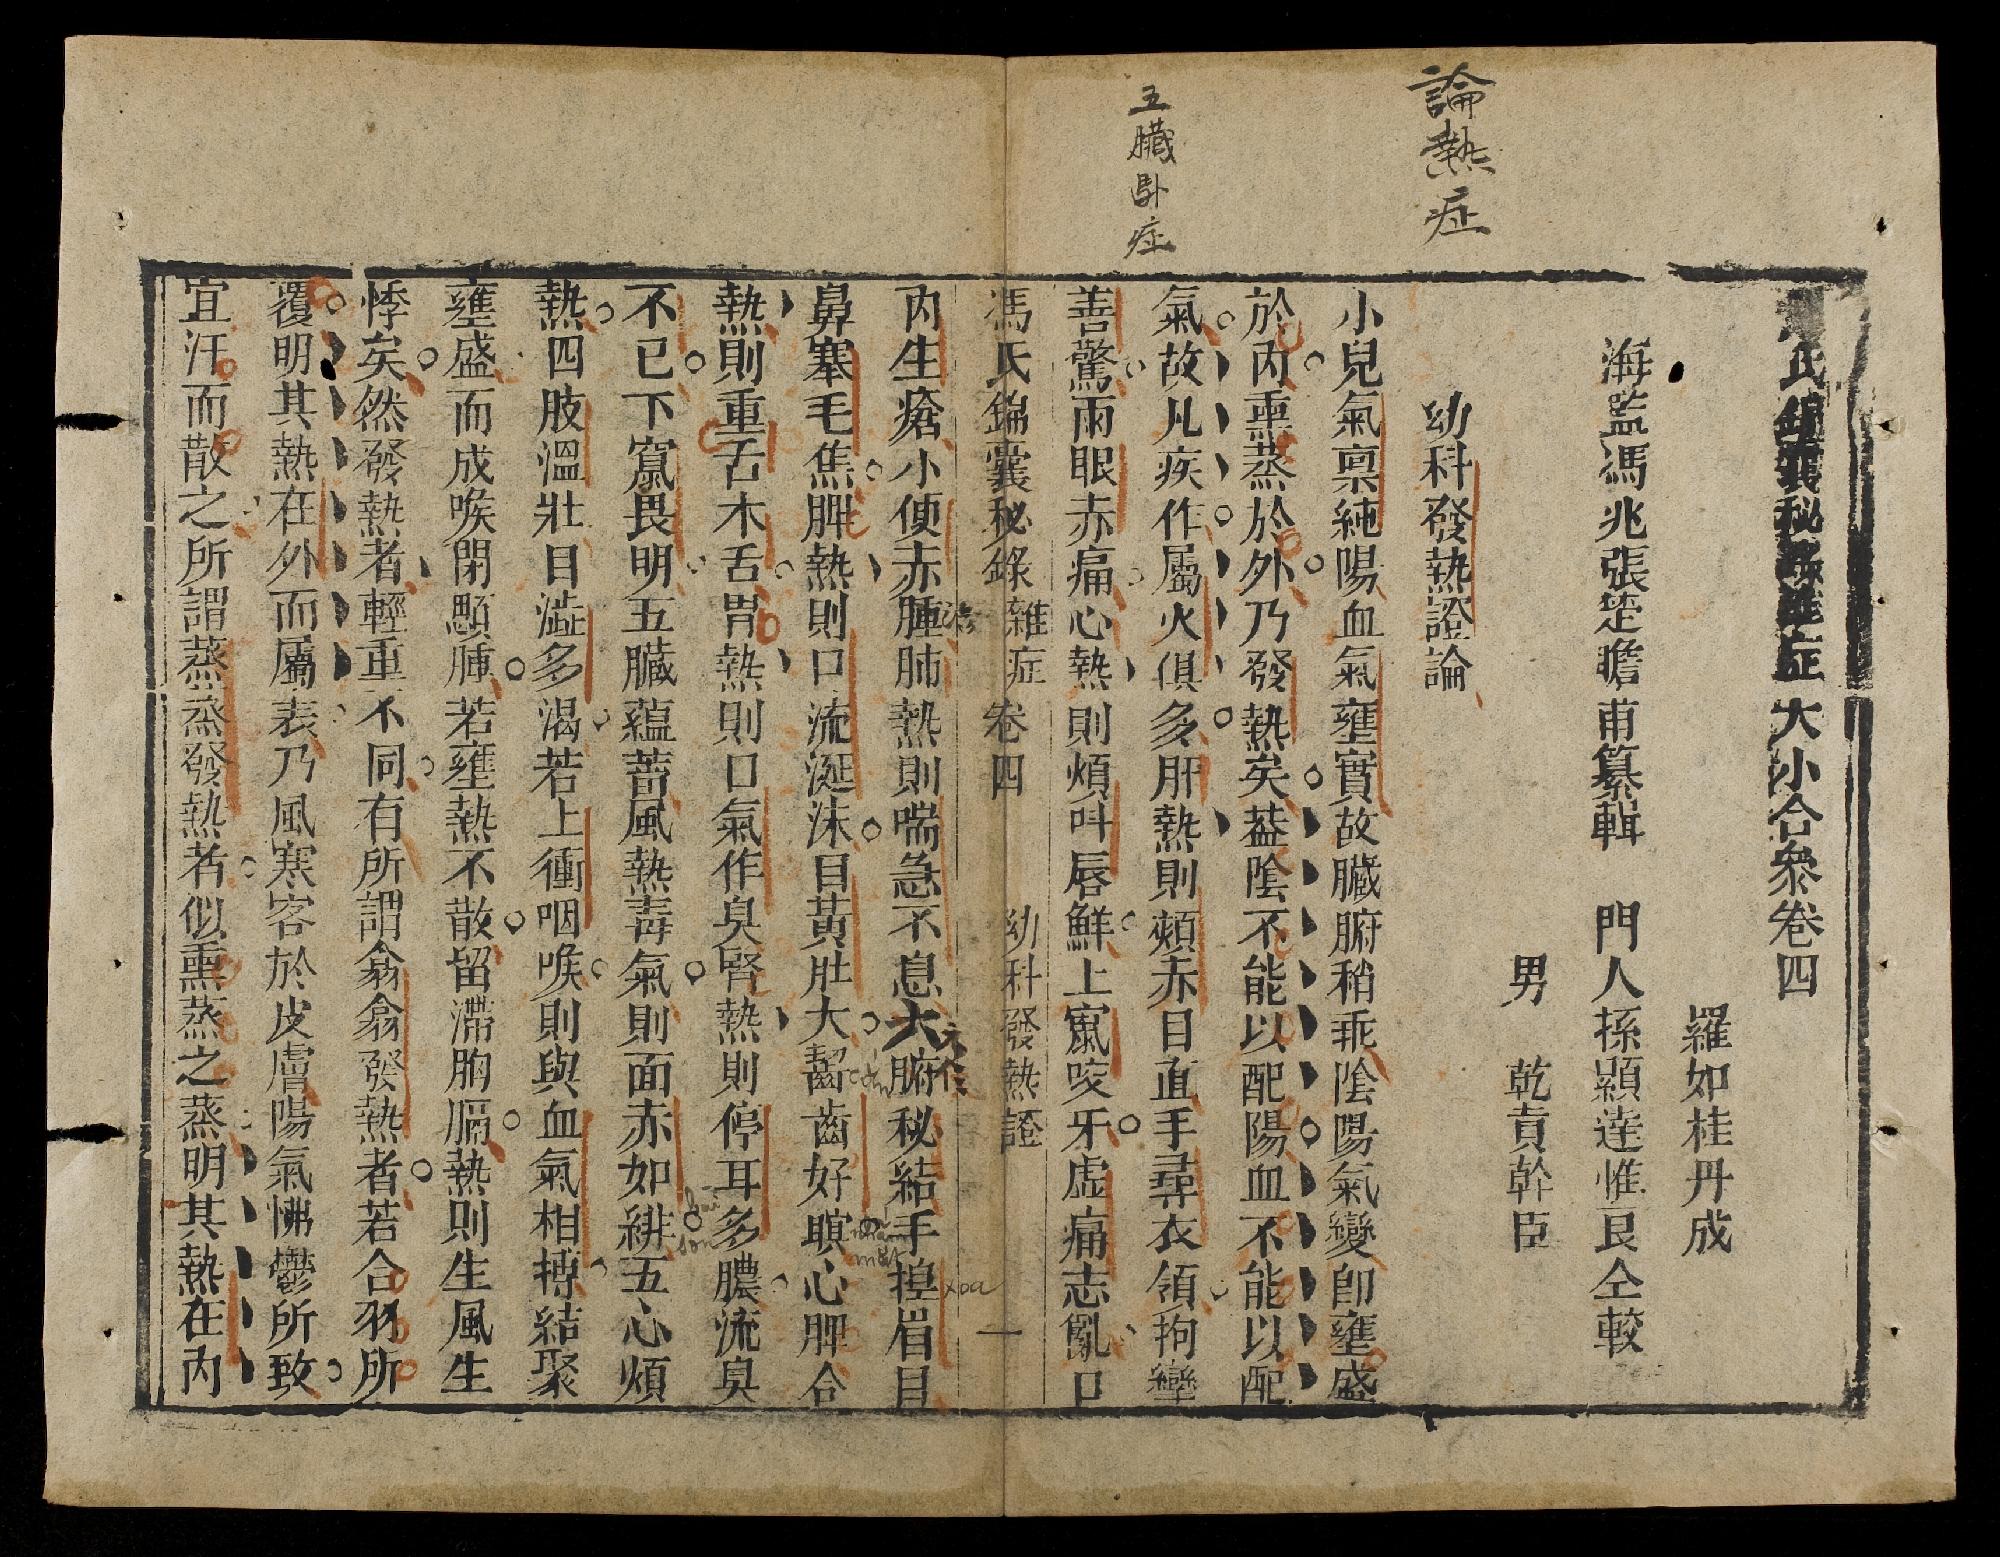 論熱症
五臟卧症
馮氏錦囊秘錄雜症大小合參卷四
羅如桂丹成
海監馮兆張楚瞻甫纂輯 門人孫顯達惟艮仝較
男 乾貢幹臣
幼科發熱證論
小兒氣禀純陽血氣壅實故臟腑稍乖陰陽氣變卽壅盛
於內熏蒸於外乃發熱矣葢陰不能以配陽血不能以配
氣故凡疾作屬火俱多肝熱則頰赤目直手尋衣領拘攣
善驚兩眼赤痛心熱則煩呌唇鮮上竄咬牙虛痛志亂口
馮氏錦囊秘錄 雜症 卷四 幼科發熱證 一
內生瘡小便赤腫肺熱則喘急不息大腑秘結手揘眉目
鼻搴毛焦脾熱則口流涎沫目黃肚大齧齒好瞑心脾合
熱則重舌木舌胃熱則口氣作臭腎熱則停耳多膿流臭
不已下竄畏明五臟蘊蓄風熱毒氣則面赤如緋五心煩
熱四肢溫壯目澁多渴若上衝咽喉則與血氣相搏結聚
壅盛而成喉閉顋腫若壅熱不散留滯胸膈熱則生風生
悸矣然發熱者輕重不同有所謂翕翕發熱者若合羽所
覆明其熱在外而屬表乃風寒客於皮膚陽氣怫鬱所致
宜汗而散之所謂蒸蒸發熱者似熏蒸之蒸明其熱在內
xoa